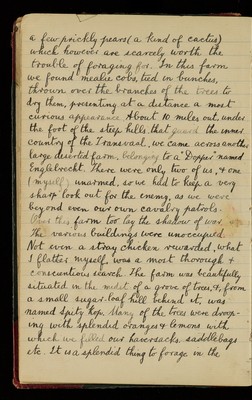 a few prickly pears (a kind of cactus)
which however are scarcely worth the
trouble of foraging for. In this farm
we found mealie cobs, tied in bunches,
thrown over the branches of the trees to
dry them, presenting at a distance a most
curious appearance. About 10 miles out, under
the foot of the steep hills that guard the inner
country of the Transvaal, we came across another
large deserted farm, belonging to a "Dopper" named
Englebrecht. There were only two of us, & one
(myself) unarmed, so we had to keep a very
sharp look out for the enemy, as we were
beyond even our own cavalry patrols.
Over this farm too lay the shadow of war,
The various buildings were unoccupied.
Not even a stray chicken rewarded, what
I flatter myself, was a most thorough &
conscientious search. The farm was beautifully
situated in the midst of a grove of trees, &, from
a small sugar-loaf hill behind it, was
named Spitz Kop. Many of the trees were droop-
ing with splendid oranges & lemons with
which we filled our haversacks, saddlebags
etc. It is a splendid thing to forage in the